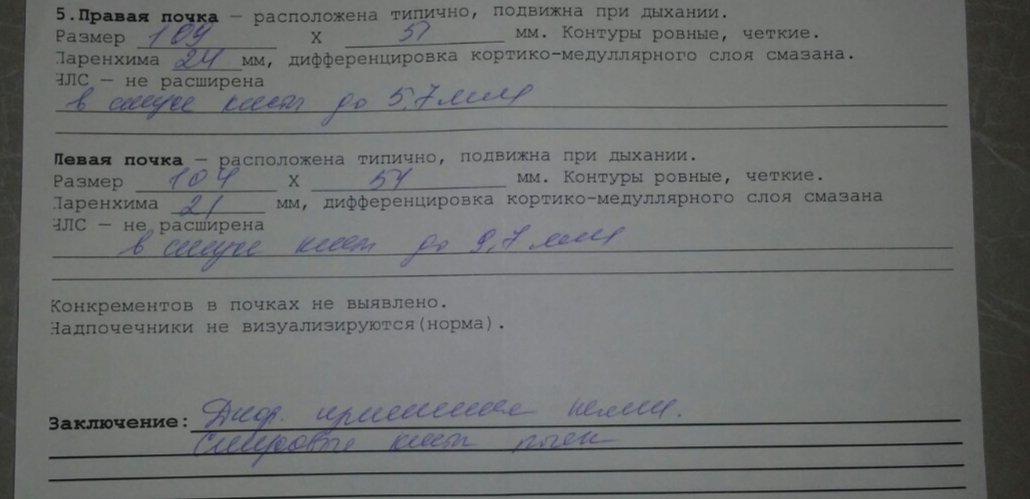 5.Правая почка — расположена типично, подвижна при дыхании.
Размер 109 X 51 мм. Контуры ровные, четкие.
Паренхима 24 мм, дифференцировка кортико-медуллярного слоя смазана.
ЧЛС — не расширена
в синусе киста до 5,7 мм
Левая почка — расположена типично, подвижна при дыхании.
Размер 104 X 54 мм. Контуры ровные, четкие.
Паренхима 21 мм, дифференцировка кортико-медуллярного слоя смазана
ЧЛС — не расширена
в синусе киста до 9,7 мм
Конкрементов в почках не выявлено.
Надпочечники не визуализируются(норма).
Заключение: Диф. изменения
кисты почек